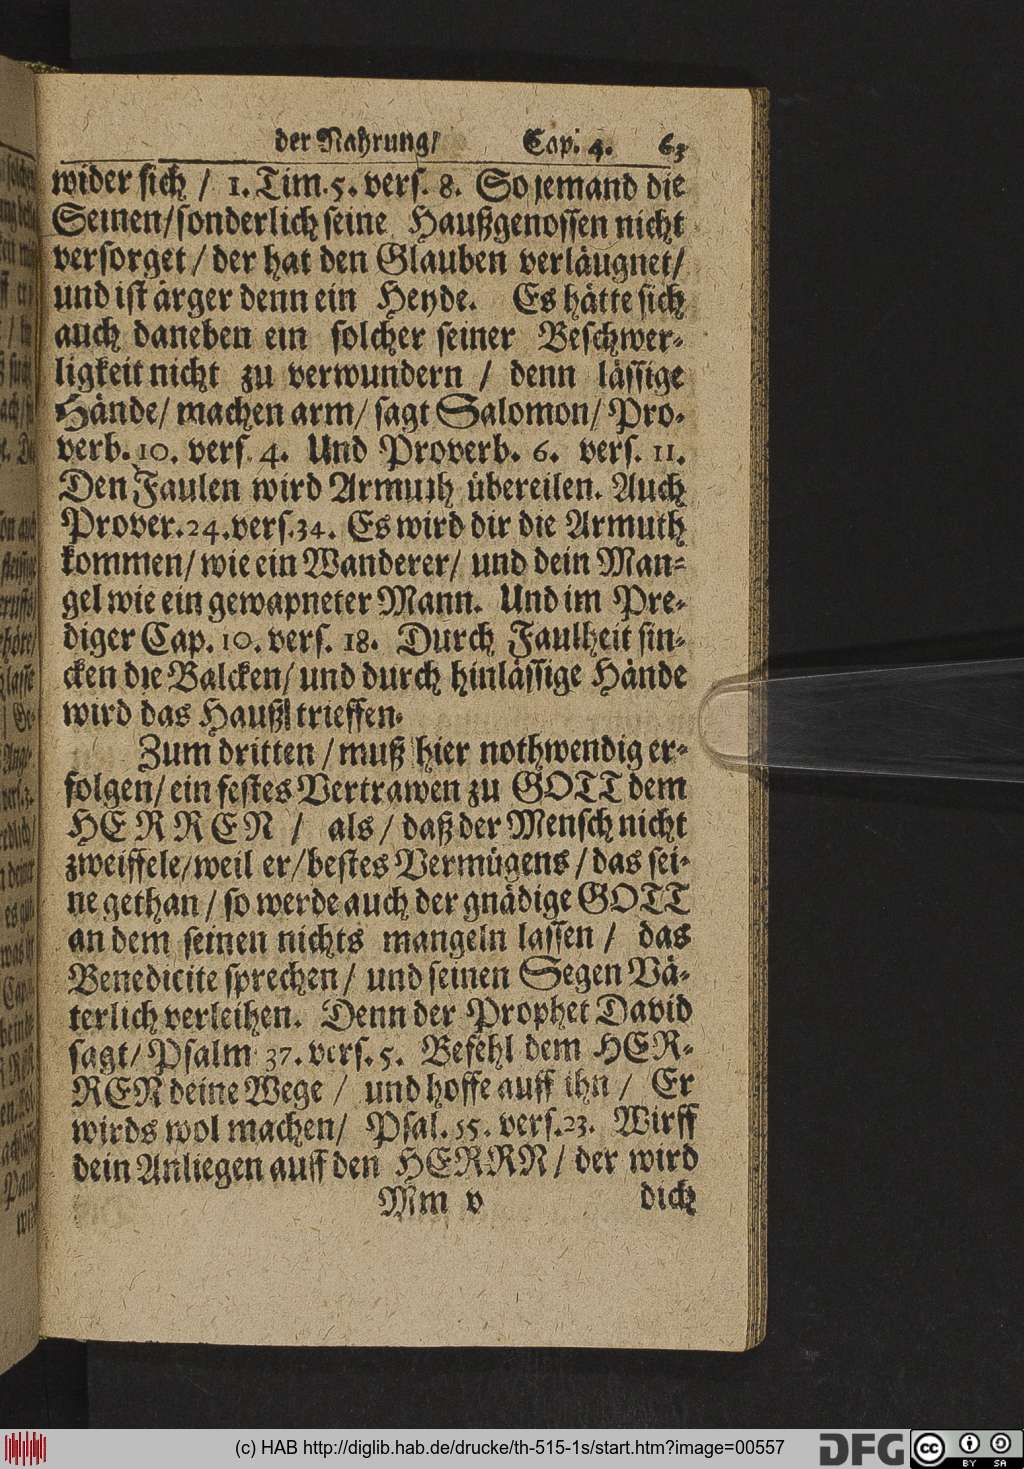 der Nahrung/ Cap. 4. 63
wider sich / 1. Tim. 5. vers. 8. So jemand die
Seinen/ sonderlich seine Haußgenossen nicht
versorget / der hat den Glauben verläugnet/
und ist ärger denn ein Heyde. Es hätte sich
auch daneben ein solcher seiner Beschwer-
ligkeit nicht zu verwundern / denn lässige
Hände/ machen arm/ sagt Salomon/ Pro-
verb. 10. vers. 4. Und Proverb. 6. vers. 11.
Den Faulen wird Armuth übereilen. Auch
Prover. 24. vers. 34. Es wird dir die Armuth
kommen/ wie ein Wanderer/ und dein Man-
gel wie ein gewapneter Mann. Und im Pre-
diger Cap. 10. vers. 18. Durch Faulheit sin-
cken die Balcken/ und durch hinlässige Hände
wird das Hauß trieffen.
Zum dritten / muß hier nothwendig er-
folgen/ ein festes Vertrawen zu GOTT dem
HERREN / als / daß der Mensch nicht
zweiffele/ weil er/ bestes Vermügens / das sei-
ne gethan / so werde auch der gnädige GOTT
an dem seinen nichts mangeln lassen / das
Benedicite sprechen / und seinen Segen Vä-
terlich verleihen. Denn der Prophet David
sagt/ Psalm 37. vers. 5. Befehl dem HER-
REN deine Wege / und hoffe auff ihn / Er
wirds wol machen/ Psal. 55. vers. 23. Wirff
dein Anliegen auff den HERRN / der wird
Mm v dich
(c) HAB http://diglib.hab.de/drucke/th-515-1s/start.htm?image=00557
DFG
cc BY SA